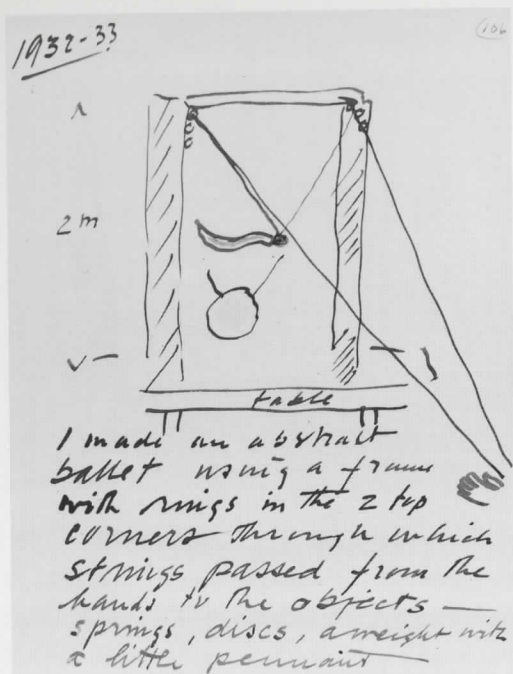 1932-33
106
2 m
table
I made an abstract
ballet using a frame
with rings in the 2 top
corners through which
strings passed from the
hands to the objects —
springs, discs, a weight with
a little pennant